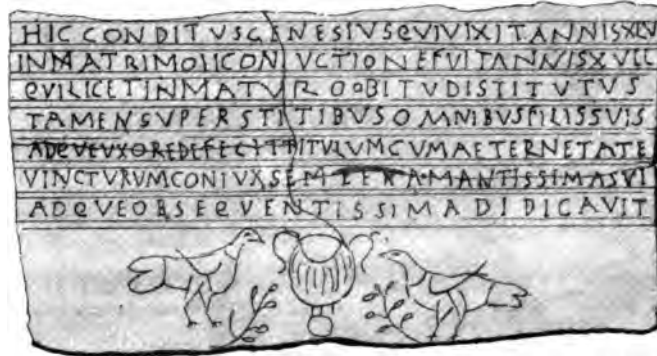 HICCONDITVSGENESIVSQVIVIXITANNISXLV
INMATRIMOIICONIVCTIONEFVITANNISXVII
QVILICETINMATVROOBITVDISTITVTVS
TAMENSVPERSTITIBVSOMNIBVSFILISSVIS
ADQVEVXOREDEFECITTITVLVMCVMAETERNETATE
VINCTVRVMCONIVXSEMPERAMANTISSIMASVI
ADQVEOBSEQVENTISSIMADIDICAVIT